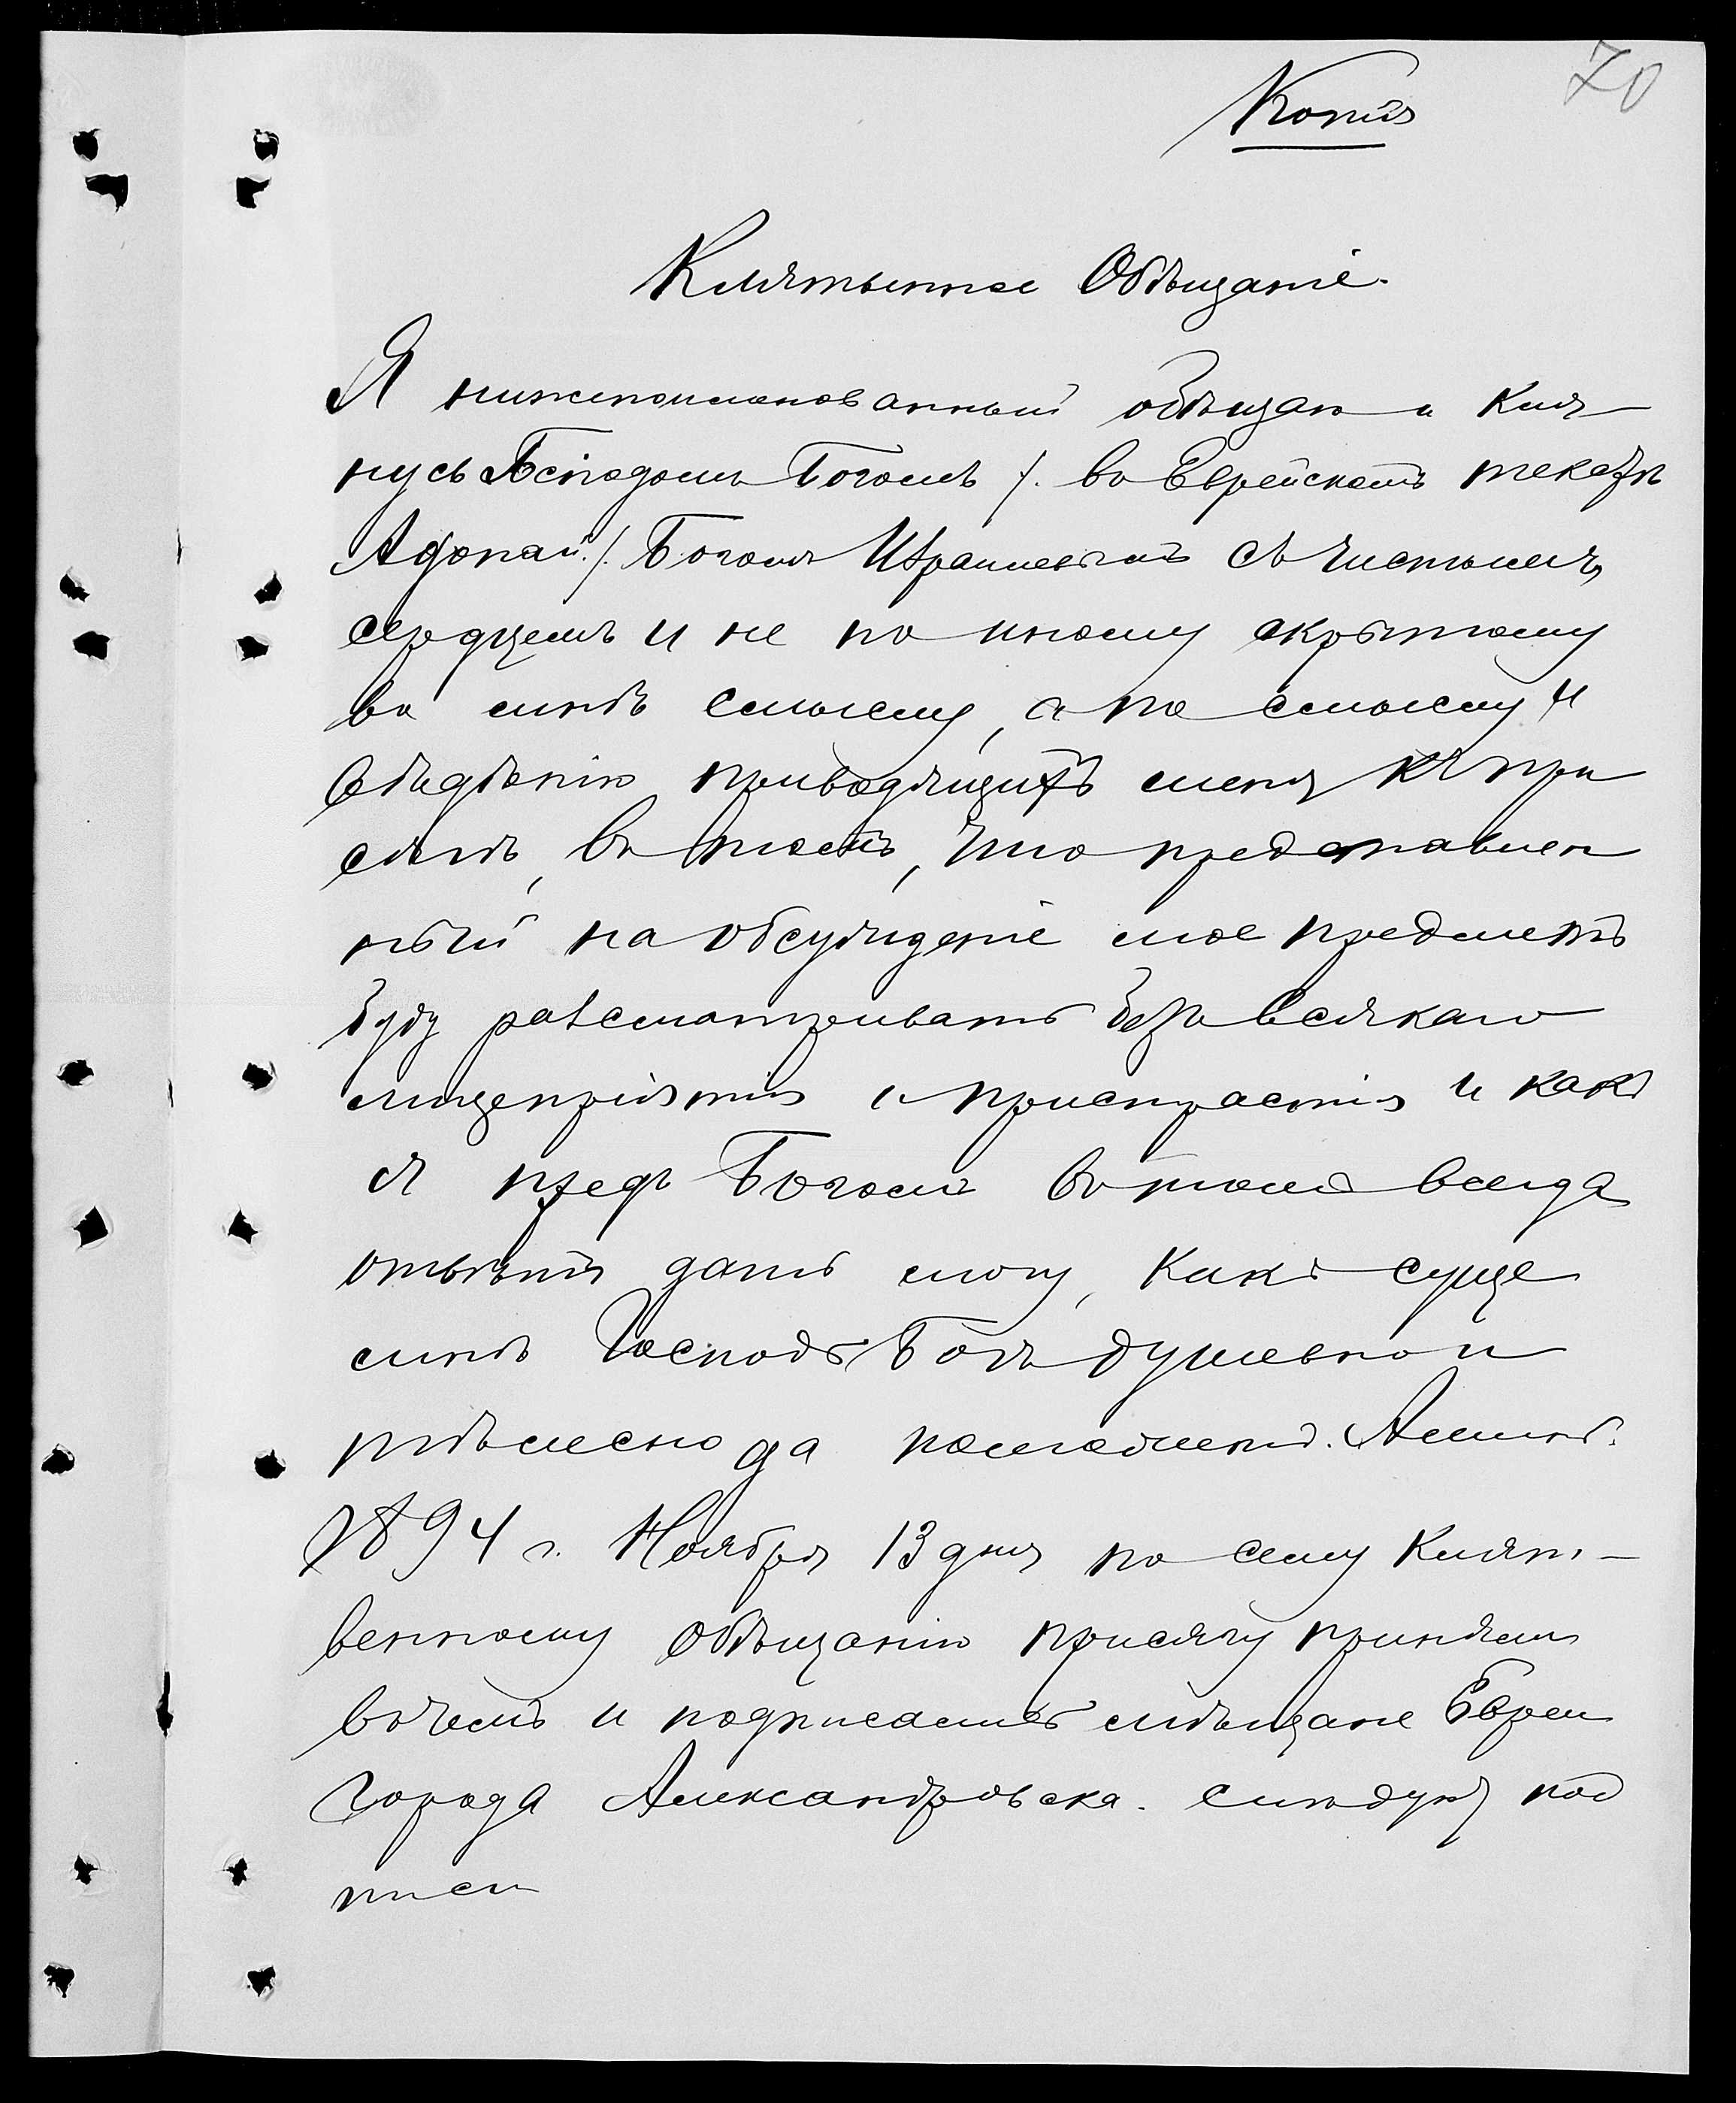 70
Копія
Клятвенное Обѣщаніе.
Я нижепоименованный обѣщаю и кля-
нусь Господомъ Богомъ /. въ Еврейскомъ текстѣ
Адонай ./. Богомъ Израилевымъ съ чистымъ
сердцемъ и не по иному скрытому
во мнѣ смыслу, а по смыслу и
вѣдѣнію приводящихъ меня къ при
сягѣ, въ томъ, что представлен
ный на обсужденіе мое предметъ
буду разсматривать безъ всякаго
лицепріятія и пристрастія и какъ
я предъ Богомъ въ томъ всегда
отвѣтъ дать могу, какъ суще
мнѣ Господь Богъ душевно и
тѣлесно да поможетъ. Аминь.
1894 г. Ноября 13 дня по сему клят-
венному обѣщанію присягу приняли
въ чемъ и подписались мѣщане Евреи
города Александровска. слѣдуютъ под
писи